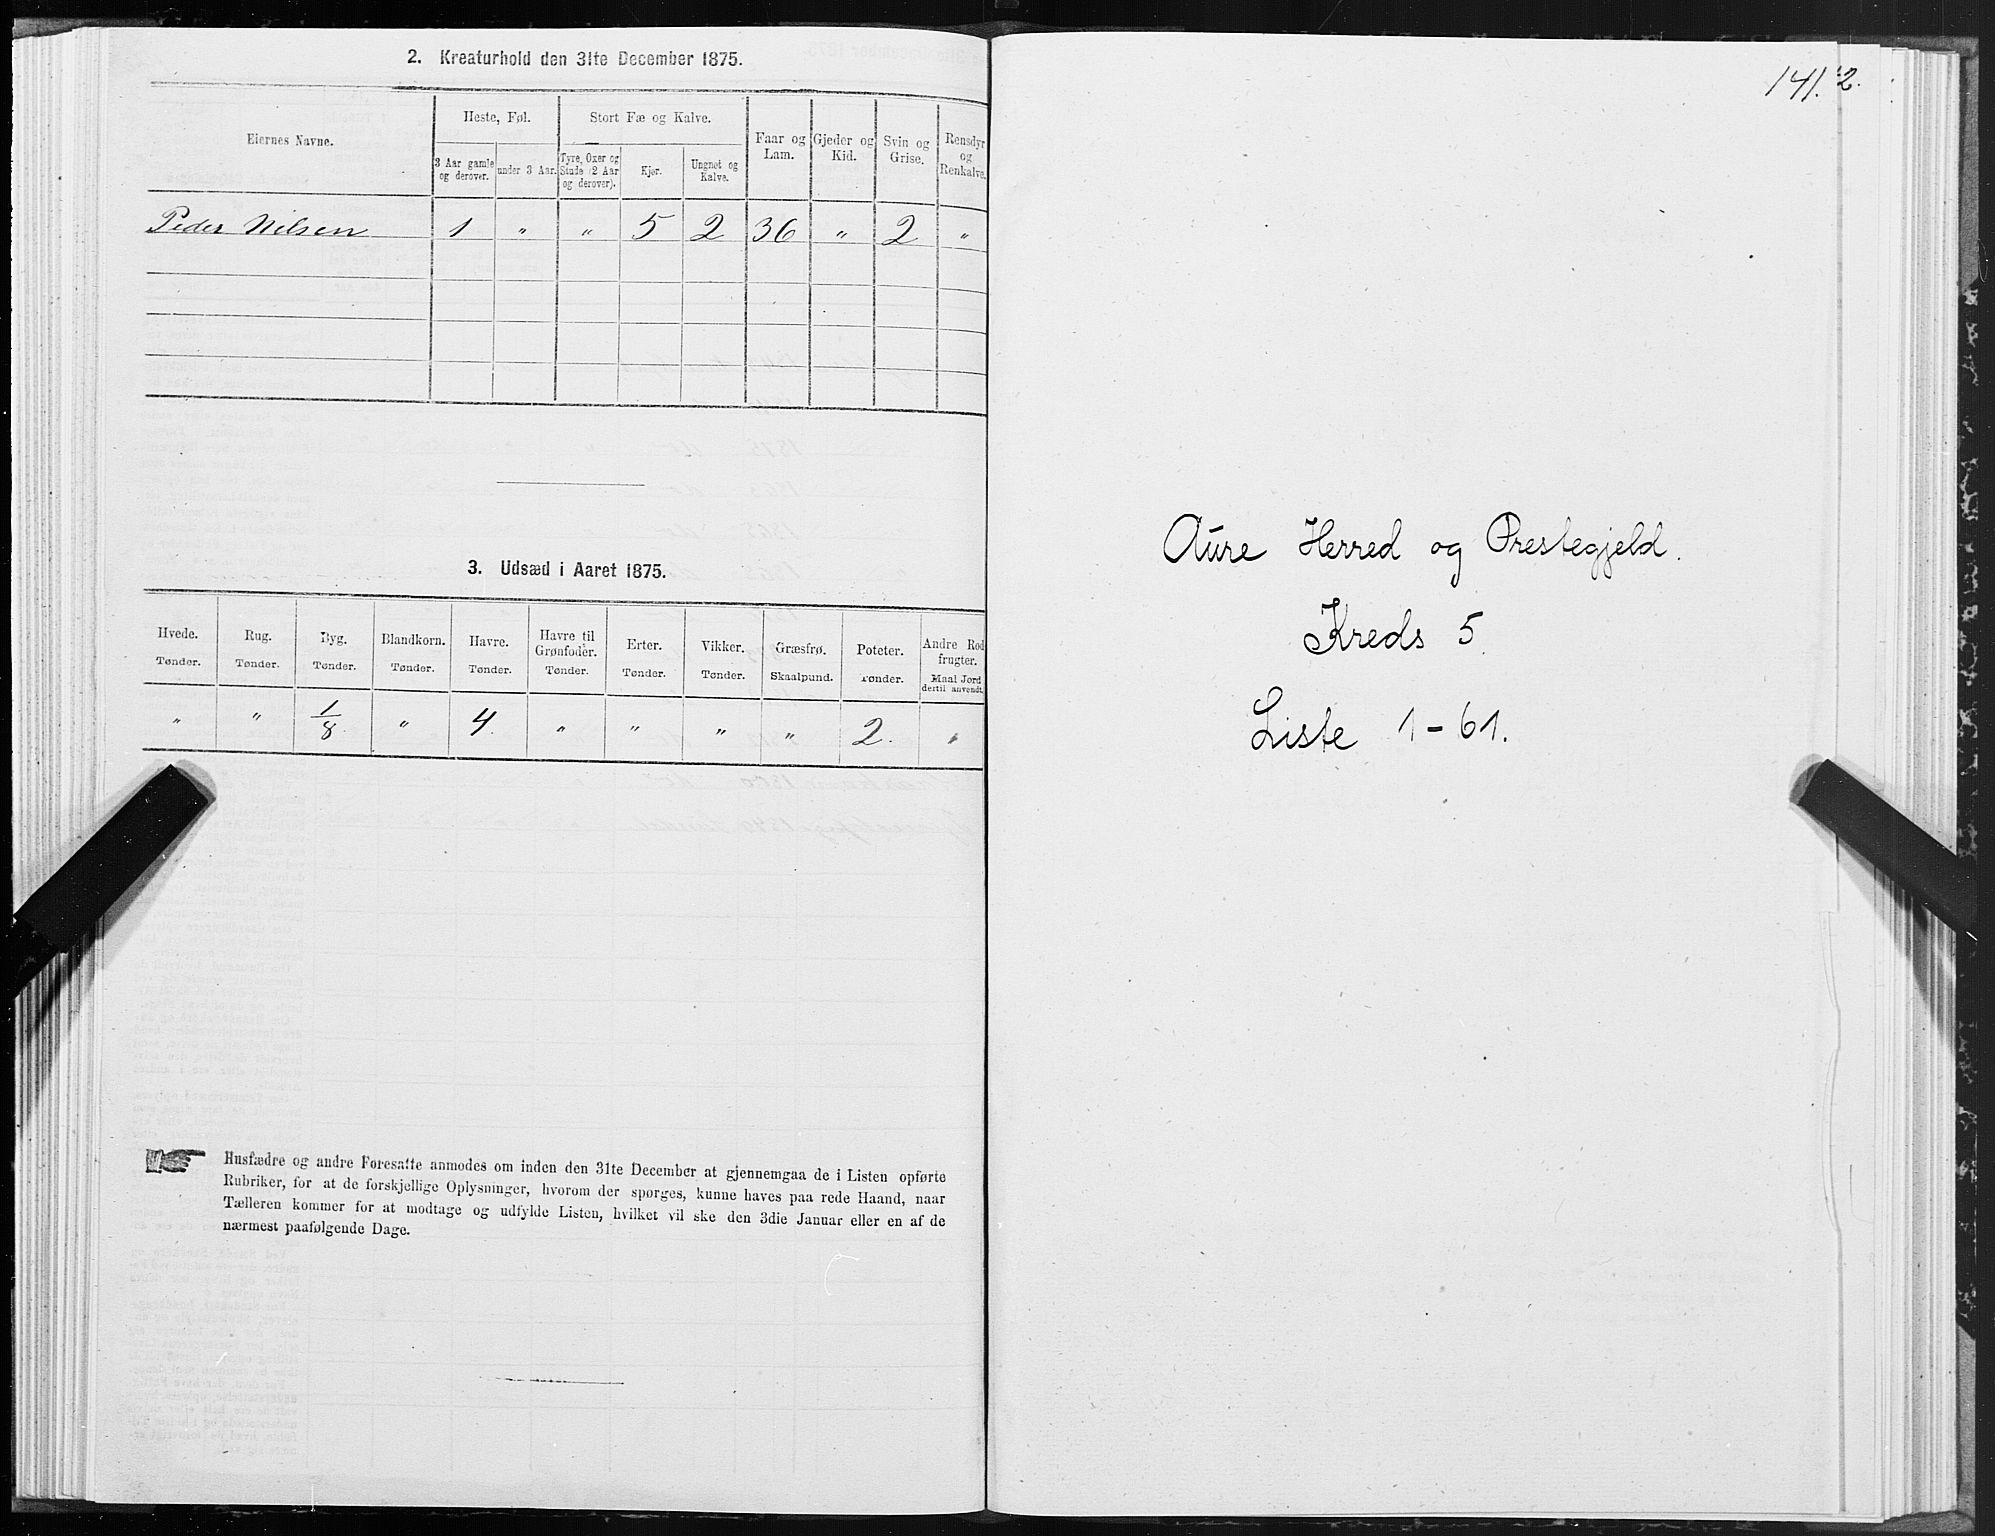 2. Kreaturhold den 31te December 1875.
Eiernes Navne.
Heste, Føl.
Stort Fæ og Kalve.
Faar og Lam.
Gjeder og Kid.
Svin og Grise.
Rensdyr og Renkalve.
3 Aar gamle og derover.
under 3 Aar.
Tyre, Oxer og Stude (2 Aar og derover).
Kjør.
Ungnøt og Kalve.
Peder Nilsen 1 " " 5 2 36 " 2 "
3. Udsæd i Aaret 1875.
Hvede. Rug. Byg. Blandkorn. Havre. Havre til Grønfoder. Erter. Vikker. Græsfrø. Poteter. Andre Rodfrugter.
Tønder. Tønder. Tønder. Tønder. Tønder. Tønder. Tønder. Tønder. Skaalpund. Tønder. Maal Jord dertil anvendt.
" " 1/8 " 4 " " " " 2 "
Husfædre og andre Foresatte anmodes om inden den 31te December at gjennemgaa de i Listen opførte
Rubriker, for at de forskjellige Oplysninger, hvorom der spørges, kunne haves paa rede Haand, naar
Tælleren kommer for at modtage og udfylde Listen, hvilket vil ske den 3die Januar eller en af de
nærmest paafølgende Dage.
141.2.
Aure Herred og Prestegjeld.
Kreds 5.
Liste 1-61.